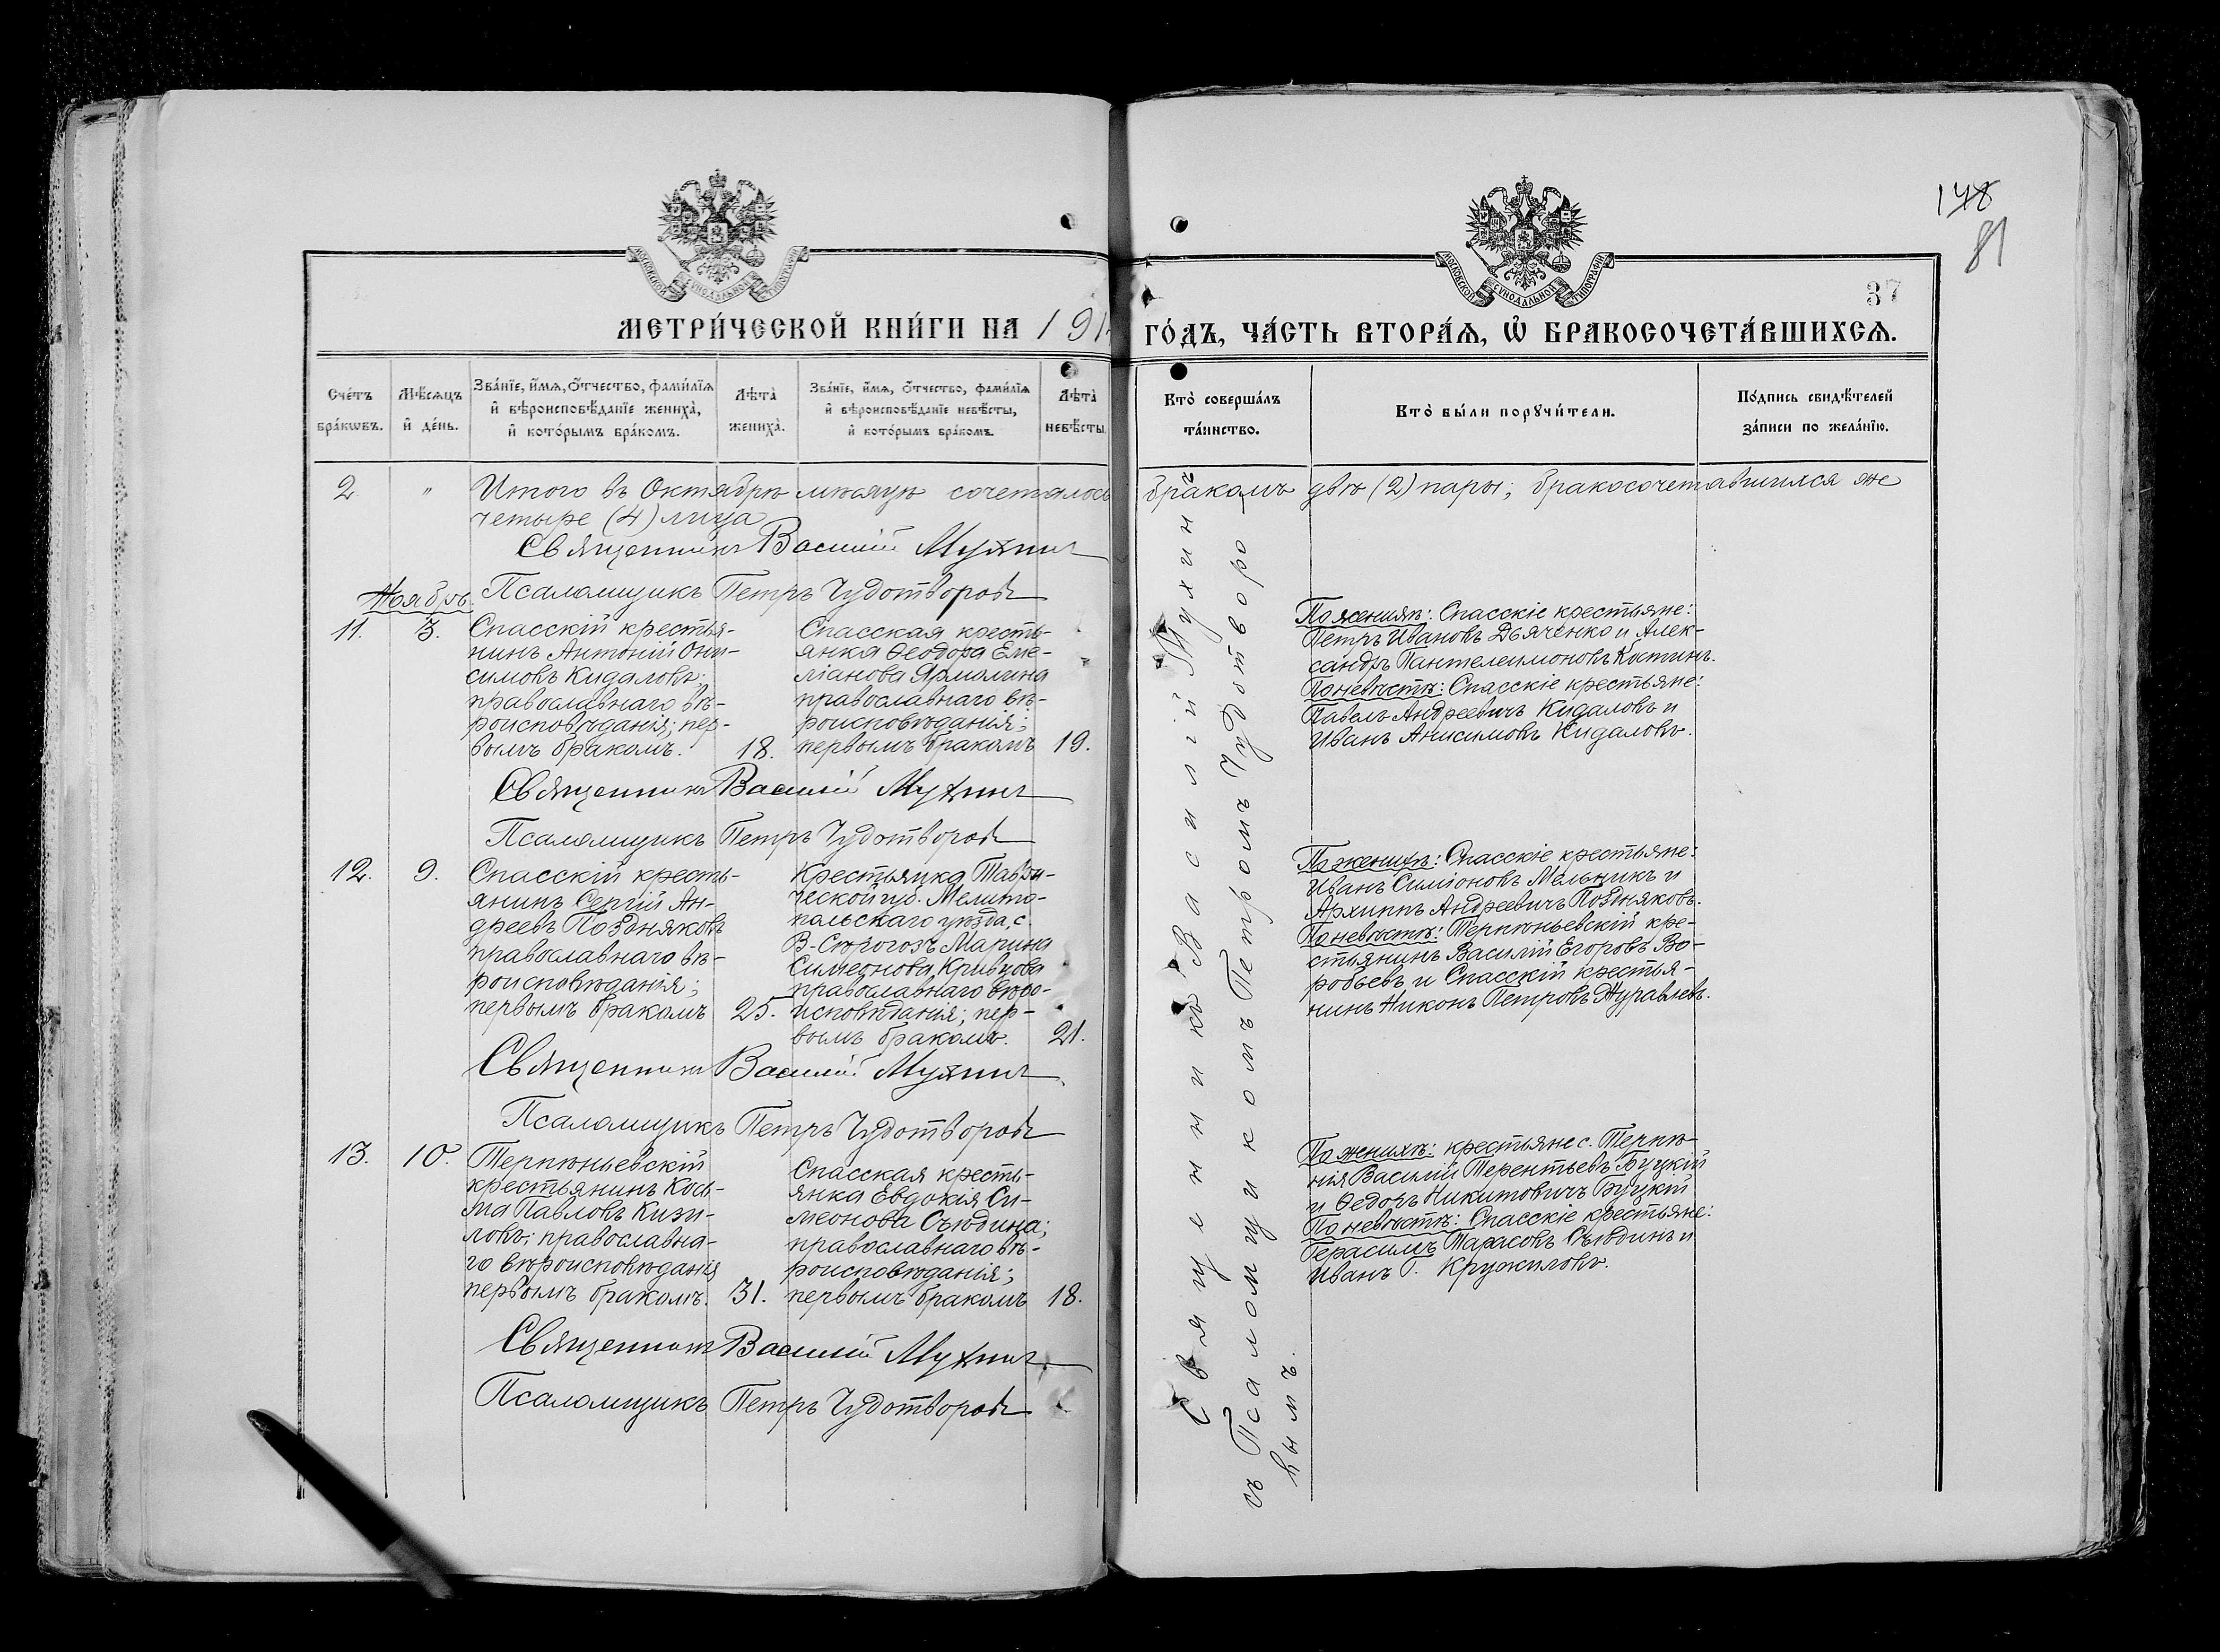 148
81
37
МОСКОВСКОЙ СѴНОДАЛЬНОЙ ТИПОГРАФІИ
МОСКОВСКОЙ СѴНОДАЛЬНОЙ ТИПОГРАФІИ
МЕТРИ́ЧЕСКОЙ КНИ́ГИ НА 191
ГО́ДЪ, ЧА́СТЬ ВТОРА́Ѧ, Ѡ҆ БРАКОСОЧЕТА́ВШИХСѦ.
Сче́тъ бра́кѡвъ.
Мѣ́сѧцъ и҆ де́нь.
Зва́нїе, и҆́мѧ, ѻ҆́тчество, фами́лїѧ
и҆ вѣроисповѣ́данїе жениха̀,
и҆ кото́рымъ бра́комъ.
Лѣта̀ жениха̀.
Зва́нїе, и҆́мѧ, ѻ҆́тчество, фами́лїѧ
и҆ вѣроисповѣ́данїе невѣ́сты,
и҆ кото́рымъ бра́комъ.
Лѣта̀ невѣ́сты.
Кто̀ соверша́лъ та́инство.
Кто̀ бы́ли порꙋчи́тели.
По́дпись свидѣ́телей
за́писи по жела́нїю.
2 " Итого въ Октябрѣ мѣсяцѣ сочеталось бракомъ двѣ (2) пары; бракосочетавшихся же
четыре (4) лица
Священникъ Василій Мухинъ
Псаломщикъ Петръ Чудотворовъ
Ноябрь.
11. 3.
Спасскій крестья-
нинъ Антоній Они-
симовъ Кидаловъ;
православнаго вѣ-
роисповѣданія; пер-
вымъ бракомъ.
18.
Спасская кресть-
янка Ѳеодора Еме-
ліанова Ярмолина
православнаго вѣ-
роисповѣданія;
первымъ бракомъ
19.
По женихѣ: Спасскіе крестьяне:
Петръ Ивановъ Дьяченко и Алек-
сандръ Пантелеимоновъ Костинъ.
По невѣстѣ: Спасскіе крестьяне:
Павелъ Андреевичъ Кидаловъ и
Иванъ Анисимовъ Кидаловъ.
Священникъ Василій Мухинъ
Псаломщикъ Петръ Чудотворовъ
12. 9.
Спасскій кресть-
янинъ Сергій Ан-
дреевъ Поздняковъ
православнаго вѣ-
роисповѣданія;
первымъ бракомъ
25.
Крестьянка Таври-
ческой губ. Мелито-
польскаго уѣзда, с.
В-Сѣрогозъ Марина
Симеонова Кривцова
православнаго вѣро-
исповѣданія; пер-
вымъ бракомъ.
21.
По женихѣ: Спасскіе крестьяне:
Иванъ Симіоновъ Мельникъ и
Архиппъ Андреевичъ Поздняковъ.
По невѣстѣ: Терпѣньевскій кре-
стьянинъ Василій Егоровъ Во-
робьевъ и Спасскій крестья-
нинъ Никонъ Петровъ Журавлевъ.
Священникъ Василій Мухинъ
Псаломщикъ Петръ Чудотворовъ
13. 10.
Терпѣньевскій
крестьянинъ Кось-
ма Павловъ Кизи-
ловъ; православна-
го вѣроисповѣданія
первымъ бракомъ.
31.
Спасская кресть-
янка Евдокія Си-
меонова Съѣдина;
православнаго вѣ-
роисповѣданія;
первымъ бракомъ
18.
По женихѣ: крестьяне с. Терпѣ-
нія Василій Терентьевъ Буцкій
и Ѳедоръ Никитовичъ Буцкій
По невѣстѣ: Спасскіе крестьяне:
Герасимъ Тарасовъ Съѣдинъ и
Иванъ Г. Кружиловъ.
Священникъ Василій Мухинъ
Псаломщикъ Петръ Чудотворовъ
Священникъ Василій Мухинъ
съ Псаломщикомъ Петромъ Чудотворо-
вымъ.